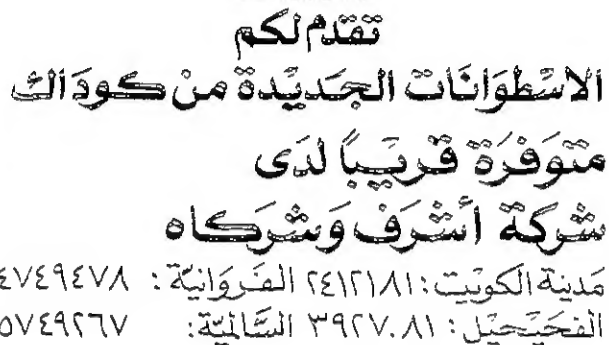 تقدم لكم
الاسْطوَانَات الجَديْدة منْ كودَاك
متوَفرَة قريبًا لدَى
شركة أشرَف وَشركاه
مَدينة الكوَيت: ٢٤١٢١٨١ الفَروَانيَّة: ٤٧٤٩٤٧٨
الفحَيْحيْل: ٣٩٢٧٠٨١ السَّالميَّة: ٥٧٤٩٢٦٧